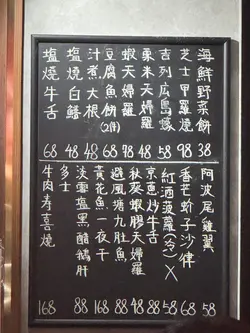 海鮮野菜餅 38
芝士甲羅燒 98
吉列広島蠔 58
粟米天婦羅 48
蝦天婦羅 98
豆腐魚餅(2件) 68
汁煮大根 48
塩燒白鱔 48
塩燒牛舌 68
阿波尾雞翼 58
香芒蚧子沙律 68
紅酒菠蘿(今)X 58
京蔥炒牛舌 88
秋葵蝦膠天婦羅 88
避風塘九肚魚 88
黃花魚一夜干 168
淡雪塩黑醋鵝肝 88
多士
牛肉寿喜燒 168